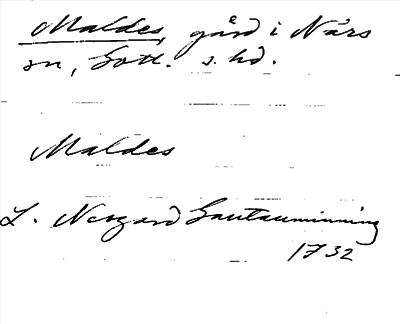 Maldes, gård i Närs
sn, Gotl. s. hd.
Maldes
L. Neogard Gautauminning
1732